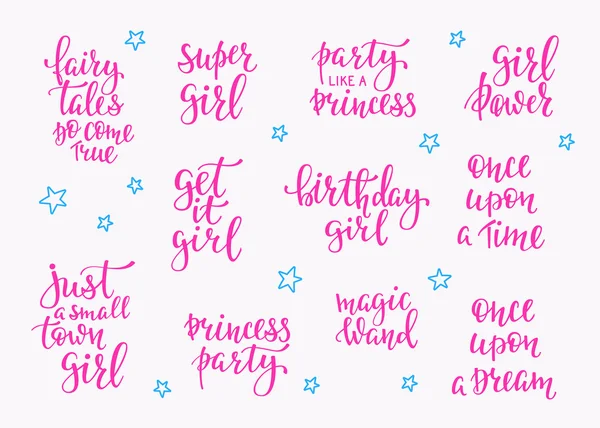 fairy
tales
do come
true
super
girl
party
LIKE A
princess
girl
power
get
it
girl
birthday
girl
once
upon
a time
just
a small
town
girl
princess
party
magic
wand
once
upon
a dream